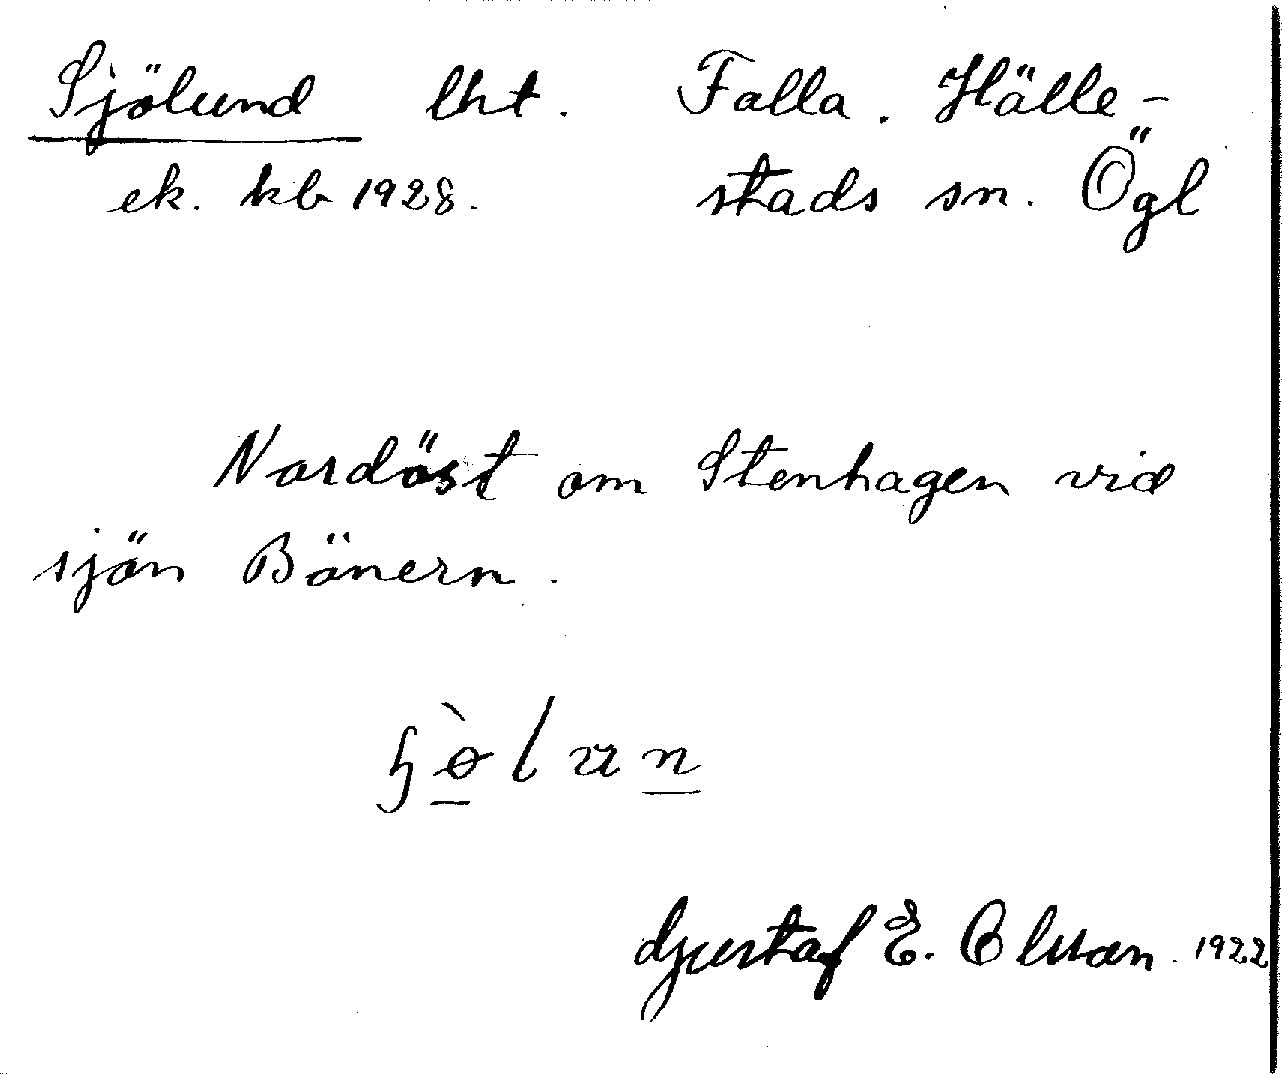 Sjölund lht. Falla. Hälle-
ek. kb 1928. stads sn. Ögl
Nordöst om Stenhagen vid
sjön Bönern.
Gustaf E. Olsson. 1922